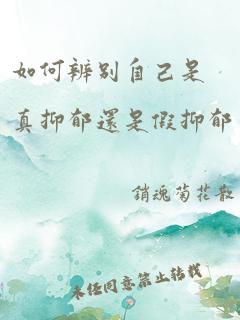 如何辨别自己是
真抑郁還是假抑郁
銷魂菊花散
未经同意禁止转载